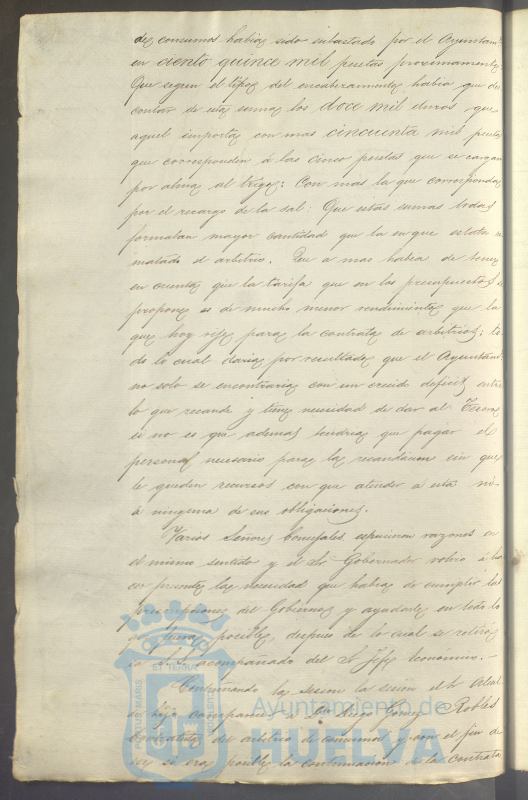 de consumos habia sido subastado por el Ayuntam.to
en ciento quince mil pesetas proximamente
Que segun el tipo del encabezamiento habia que des
contar de esta suma los doce mil duros que
aquel importa con mas cincuenta mil pesetas
que corresponden á las cinco pesetas que se cargan
por alma al trigo: Con mas la que corresponda
por el recargo de la sal: Que estas sumas todas
formatan mayor cantidad que la en que estaba re
matado el arbitrio. Que a mas habia de tener
en cuenta que la tarifa que en los presupuestos se
propone es de mucho menor rendimiento que la
que hoy rije para la contrata de arbitrios; to
do lo cual daria por resultado que el Ayuntam.to
no solo se encontraria con un crecido deficit entre
lo que recaude y tiene necesidad de dar al Tesoro
si no es que ademas tendria que pagar el
personal necesario para la recaudacion sin que
le queden recursos con que atender á esta ni
á ninguna de sus obligaciones.
Varios Señores Concejales espusieron razones en
el mismo sentido y el Sr Gobernador volvio á ha
cer presente la necesidad que habia de cumplir las
prescripciones del Gobierno y ayudarle en todo lo
que fuera posible, despues de lo cual se retiró
S.S. acompañado del Sr Jefe Economico.-
Continuando la sesion la sesion el Sr Alcal
de hizo comparecer á Don Diego Gomez Robles
Contratista del arbitrio de consumos y con el fin de
ver si era posible la continuacion de la contrata
PORTUS MARIS
ET TERRAE
Ayuntamiento de
HUELVA